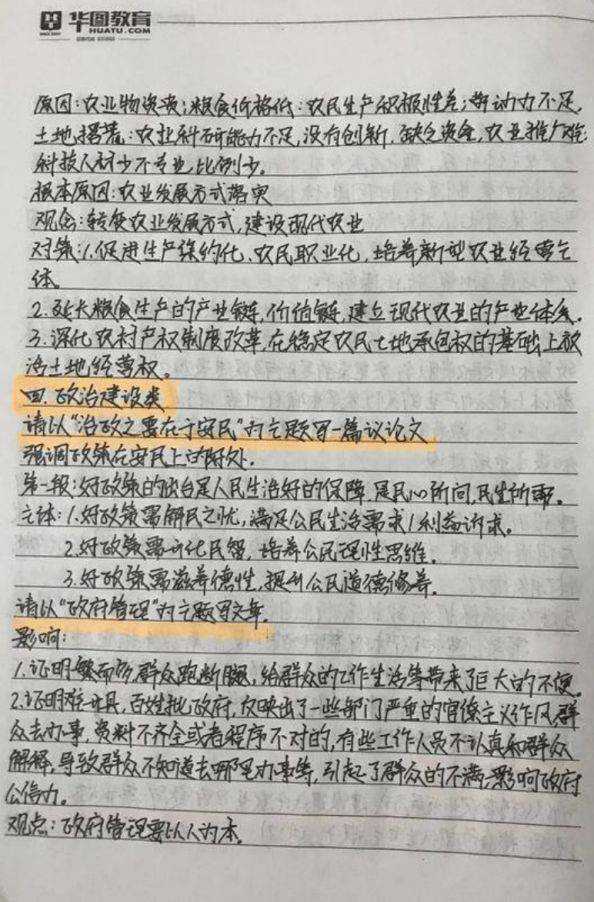 华图教育
HUATU.COM
原因:农业物资贵;粮食价格低:农民生产积极性差;劳动力不足,
土地撂荒:农业科研能力不足,没有创新,缺乏资金,农业推广难;
科技人材少不专业,比例少。
根本原因:农业发展方式落实
观念:转变农业发展方式,建设现代农业
对策:1.促进生产集约化、农民职业化,培养新型农业经营主
体。
2.延长粮食生产的产业链,价值链,建立现代农业的产业体系。
3.深化农村产权制度改革,在稳定农民土地承包权的基础上放
活土地经营权。
四.政治建设类
请以“治政之要在于安民”为主题写一篇议论文
强调政策在安民上的好处.
第一段:好政策的出台是人民生活好的保障,是民心所向,民生所
主体:1.好政策需解民之忧,满足公民生活需求/利益诉求。
2.好政策需开化民智,培养公民理性思维.
3.好政策需滋养德性,提升公民道德修养.
请以“政府管理”为主题写文章.
影响:
1.证明繁而多,群众跑断腿,给群众的工作生活等带来了巨大的不便。
2.证明难开具,百姓批政府,反映出了一些部门严重的官僚主义作风,群
众去办事,资料不齐全或者程序不对的,有些工作人员不认真和群众
解释,导致群众不知道去哪里办事等,引起了群众的不满,影响政府
公信力.
观点:政府管理要以人为本.